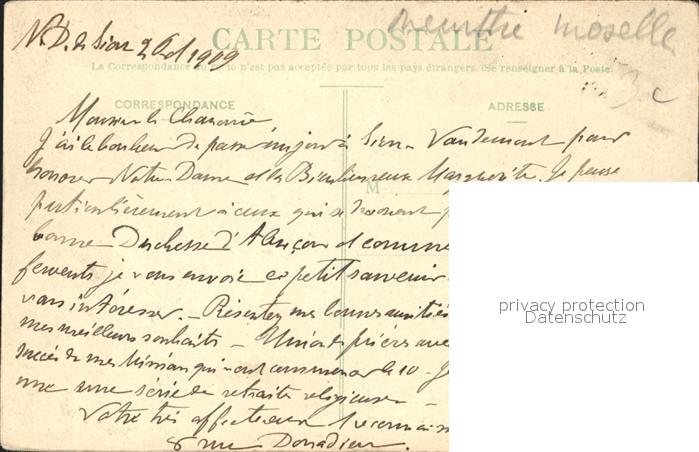 meurthe moselle
N.D. de Sion 2 Oct 1909
CARTE POSTALE
La Correspondance au recto n'est pas acceptée par tous les pays étrangers. (Se renseigner à la Poste.
CORRESPONDANCE
ADRESSE
Monsieur le Chanoine
J'ai le bonheur de passer un jour à Sion-Vaudemont pour
honorer Notre Dame et la Bienheureuse Marguerite. Je pense
particulièrement à ceux qui se devouent
M
bonne Duchesse d'Alençon et comme
fervents je vous envoie ce petit souvenir
vous intéresser. - Présentez mes bonnes amitiés
mes meilleurs souhaits - Union de prières avec
succès de mes Missions qui vont commencer le 10 - Je
une série de retraites religieuses -
Votre très affectueux reconnaiss
8 rue Donadieu.
privacy protection
Datenschutz